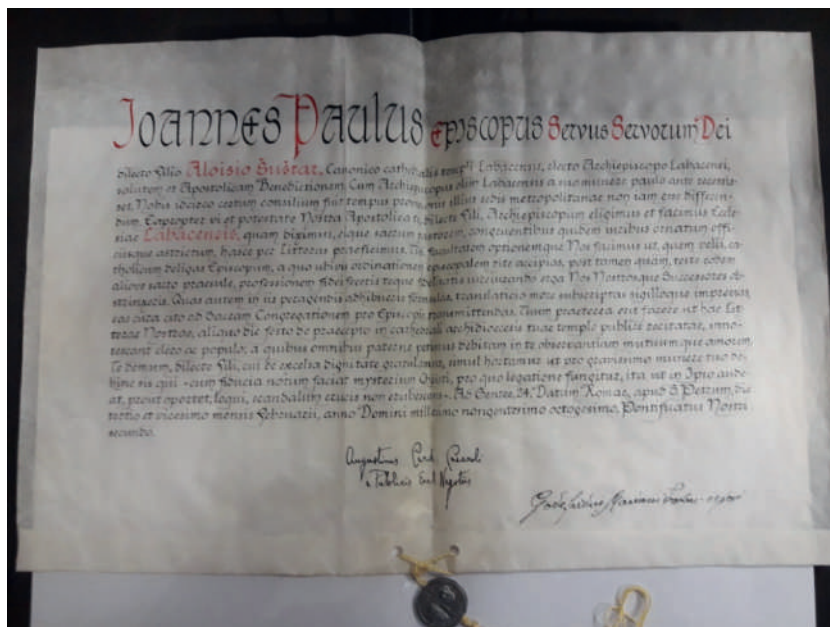 Joannes Paulus Episcopus Servus Servorum Dei
dilecto Filio Aloisio Šuštar, Canonico cathedralis templi Labacensis, electo Archiepiscopo Labacensi,
salutem et Apostolicam Benedictionem. Cum Archiepiscopus olim Labacensis a suo munere paulo ante recessis-
set, Nobis idcirco certum consilium fuit tempus provisionis illius sedis metropolitanae non iam esse differen-
dum. Eapropter vi et potestate Nostra Apostolica te, dilecte Fili, Archiepiscopum eligimus et facimus Eccle-
siae Labacensis, quam diximus, eique sacrum pastorem, congruentibus quidem iuribus ornatum offi-
ciisque astrictum, hasce per Litteras praeficimus. Tibi facultatem optionemque Nos facimus ut, quem velis, ca-
tholicum deligas Episcopum, a quo ubivis ordinationem episcopalem rite accipias, post tamen quam, teste eodem
aliove sacro praesule, professionem fidei feceris teque fidelitatis iureiurando erga Nos Nostrosque Successores ob-
strinxeris. Quas autem in iis peragentis adhibueris formulas, translaticio more subscriptas sigilloque impressas,
eas cura cito ad Sacram Congregationem pro Episcopis transmittendas. Tuum praeterea erit facere ut hae Lit-
terae Nostrae, aliquo die festo de praecepto in cathedrali archidioecesis tuae templo publice recitatae, inno-
tescant clero ac populo; a quibus omnibus paterne petimus debitam in te observantiam mutuumque amorem.
Te demum, dilecte Fili, cui de excelsa dignitate gratulamur, simul hortamur ut pro gravissimo munere tuo de-
hinc sis qui «cum fiducia notum faciat mysterium Christi, pro quo legatione fungitur, ita, ut in Ipso aude-
at, prout oportet, loqui, scandalum crucis non erubescens». Ad Gentes, 24. Datum Romae, apud S. Petrum, die
tertio et vicesimo mensis Februarii, anno Domini millesimo nongentesimo octogesimo, Pontificatus Nostri
secundo.
Augustinus Card. Casaroli
a Publicis Eccl. Negotiis